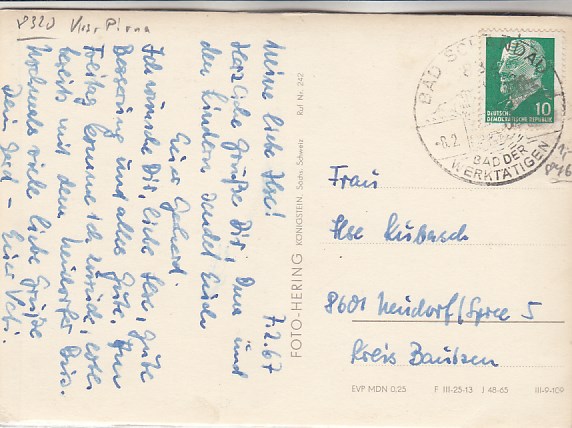 8320 Kr. Pirna
7.2.67
Meine liebe Ilse!
Herzliche Grüße Dir, Oma und
den Kindern sendet Euch
Euer Gerhard.
Ich wünsche Dir, liebe Ilse, gute
Besserung und alles Gute. Am
Freitag komme ich zurück, evtl.
bereits mit dem Neudorfer Bus.
Nochmals viele liebe Grüße
Dein Gerd – Euer Vati.
FOTO-HERING KÖNIGSTEIN, Sächs. Schweiz Ruf Nr. 242
BAD SCHANDAU
-8.2.
BAD DER
WERKTÄTIGEN
DEUTSCHE
DEMOKRATISCHE REPUBLIK
10
Frau
Ilse Kubasch
8601 Neudorf/Spree 5
Kreis Bautzen
EVP MDN 0,25 F III-25-13 J 48-65 III-9-109